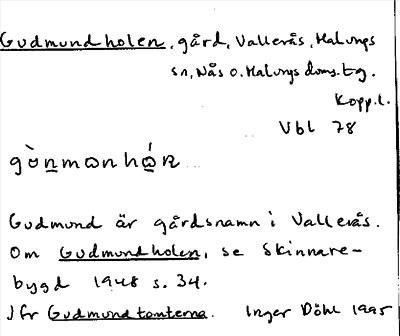 Gudmundholen, gård, Vallerås, Malungs
sn, Nås o. Malungs doms. tg.
Kopp.l.
Vbl 78
Gudmund är gårdsnamn i Vallerås.
Om Gudmundholen, se Skinnare-
bygd 1948 s. 34.
Jfr Gudmundtomterna. Inger Döhl 1995